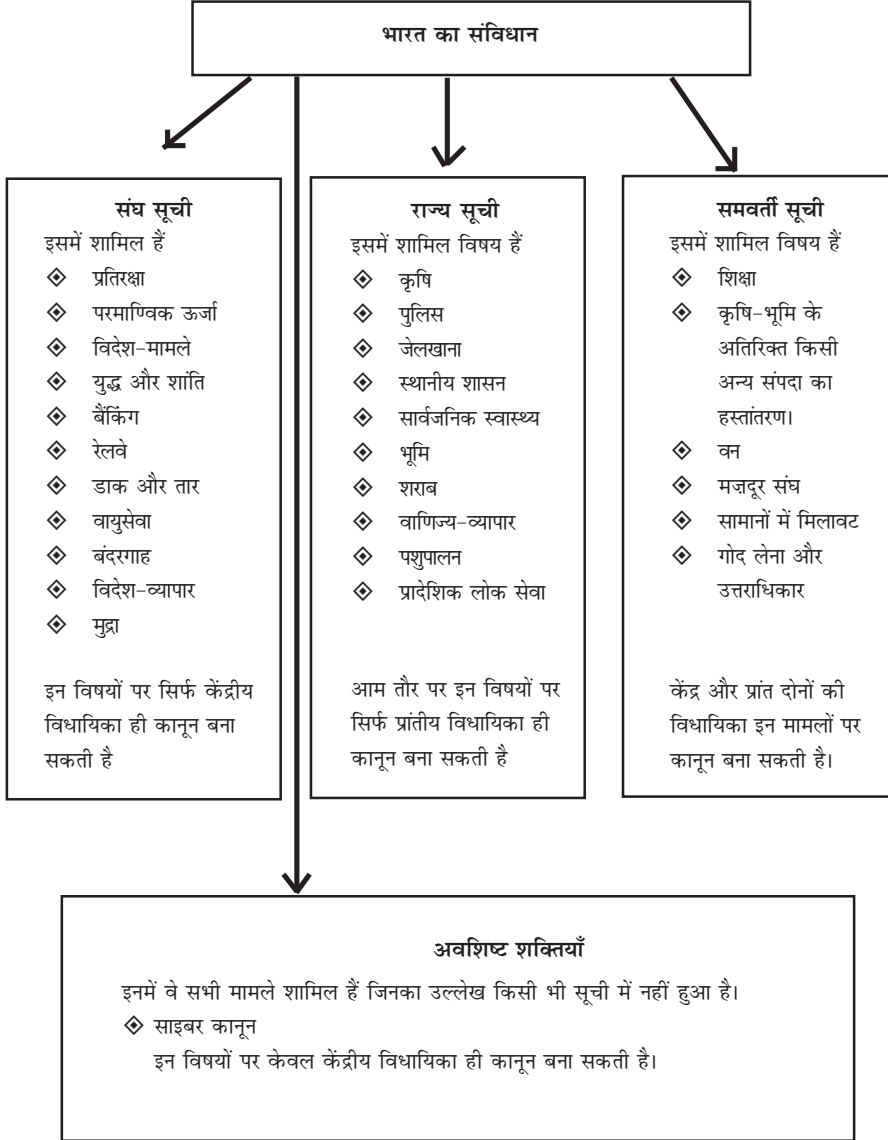 भारत का संविधान
संघ सूची
इसमें शामिल हैं
प्रतिरक्षा
परमाण्विक ऊर्जा
विदेश-मामले
युद्ध और शांति
बैंकिंग
रेलवे
डाक और तार
वायुसेवा
बंदरगाह
विदेश-व्यापार
मुद्रा
इन विषयों पर सिर्फ केंद्रीय
विधायिका ही कानून बना
सकती है
राज्य सूची
इसमें शामिल विषय हैं
कृषि
पुलिस
जेलखाना
स्थानीय शासन
सार्वजनिक स्वास्थ्य
भूमि
शराब
वाणिज्य-व्यापार
पशुपालन
प्रादेशिक लोक सेवा
आम तौर पर इन विषयों पर
सिर्फ प्रांतीय विधायिका ही
कानून बना सकती है
समवर्ती सूची
इसमें शामिल विषय हैं
शिक्षा
कृषि-भूमि के
अतिरिक्त किसी
अन्य संपदा का
हस्तांतरण।
वन
मज़दूर संघ
सामानों में मिलावट
गोद लेना और
उत्तराधिकार
केंद्र और प्रांत दोनों की
विधायिका इन मामलों पर
कानून बना सकती है।
अवशिष्ट शक्तियाँ
इनमें वे सभी मामले शामिल हैं जिनका उल्लेख किसी भी सूची में नहीं हुआ है।
साइबर कानून
इन विषयों पर केवल केंद्रीय विधायिका ही कानून बना सकती है।